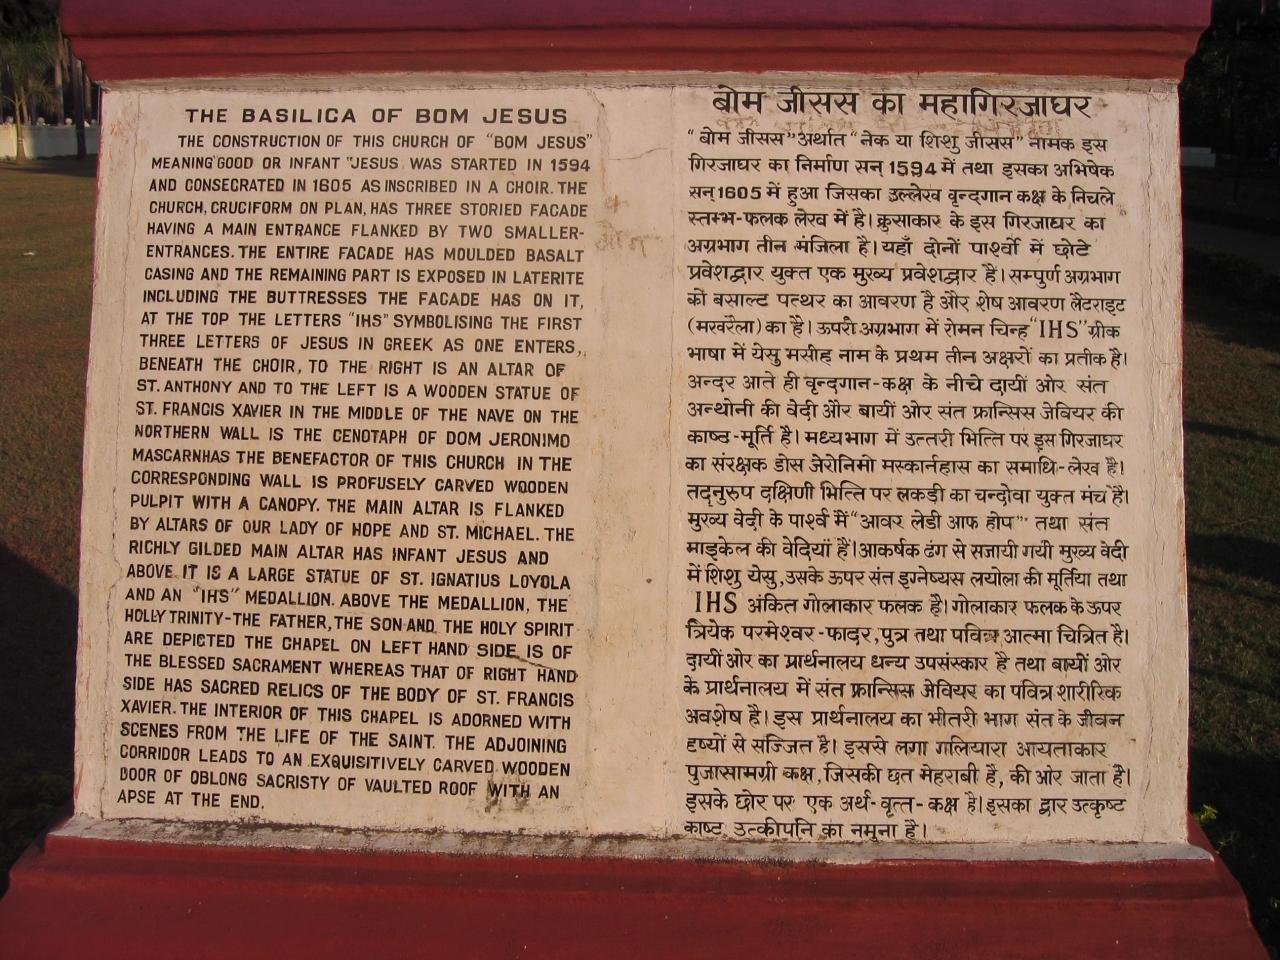 THE BASILICA OF BOM JESUS
THE CONSTRUCTION OF THIS CHURCH OF "BOM JESUS"
MEANING GOOD OR INFANT "JESUS WAS STARTED IN 1594
AND CONSECRATED IN 1605 AS INSCRIBED IN A CHOIR. THE
CHURCH, CRUCIFORM ON PLAN, HAS THREE STORIED FACADE
HAVING A MAIN ENTRANCE FLANKED BY TWO SMALLER-
ENTRANCES. THE ENTIRE FACADE HAS MOULDED BASALT
CASING AND THE REMAINING PART IS EXPOSED IN LATERITE
INCLUDING THE BUTTRESSES THE FACADE HAS ON IT,
AT THE TOP THE LETTERS "IHS" SYMBOLISING THE FIRST
THREE LETTERS OF JESUS IN GREEK AS ONE ENTERS,
BENEATH THE CHOIR, TO THE RIGHT IS AN ALTAR OF
ST. ANTHONY AND TO THE LEFT IS A WOODEN STATUE OF
ST. FRANCIS XAVIER IN THE MIDDLE OF THE NAVE ON THE
NORTHERN WALL IS THE CENOTAPH OF DOM JERONIMO
MASCARNHAS THE BENEFACTOR OF THIS CHURCH IN THE
CORRESPONDING WALL IS PROFUSELY CARVED WOODEN
PULPIT WITH A CANOPY. THE MAIN ALTAR IS FLANKED
BY ALTARS OF OUR LADY OF HOPE AND ST. MICHAEL. THE
RICHLY GILDED MAIN ALTAR HAS INFANT JESUS AND
ABOVE IT IS A LARGE STATUE OF ST. IGNATIUS LOYOLA
AND AN "IHS" MEDALLION. ABOVE THE MEDALLION, THE
HOLLY TRINITY-THE FATHER, THE SON AND THE HOLY SPIRIT
ARE DEPICTED THE CHAPEL ON LEFT HAND SIDE IS OF
THE BLESSED SACRAMENT WHEREAS THAT OF RIGHT HAND
SIDE HAS SACRED RELICS OF THE BODY OF ST. FRANCIS
XAVIER. THE INTERIOR OF THIS CHAPEL IS ADORNED WITH
SCENES FROM THE LIFE OF THE SAINT. THE ADJOINING
CORRIDOR LEADS TO AN EXQUISITIVELY CARVED WOODEN
DOOR OF OBLONG SACRISTY OF VAULTED ROOF WITH AN
APSE AT THE END.
बोम जीसस का महागिरजाघर
"बोम जीसस" अर्थात "नेक या शिशु जीसस" नामक इस
गिरजाघर का निर्माण सन् 1594 में तथा इसका अभिषेक
सन् 1605 में हुआ जिसका उल्लेख वृन्दगान कक्ष के निचले
स्तम्भ-फलक लेख में है। क्रुसाकार के इस गिरजाघर का
अग्रभाग तीन मंजिला है। यहाँ दोनों पार्श्वो में छोटे
प्रवेशद्वार युक्त एक मुख्य प्रवेशद्वार है। सम्पुर्ण अग्रभाग
को बसाल्ट पत्थर का आवरण है और शेष आवरण लैटराइट
(मखरैला) का है। ऊपरी अग्रभाग में रोमन चिन्ह "IHS" ग्रीक
भाषा में येसु मसीह नाम के प्रथम तीन अक्षरों का प्रतीक है।
अन्दर आते ही वृन्दगान-कक्ष के नीचे दायीं ओर संत
अन्थोनी की वेदी और बायीं ओर संत फ्रान्सिस जेवियर की
काष्ठ-मूर्ति है। मध्यभाग में उत्तरी भित्ति पर इस गिरजाघर
का संरक्षक डोस जेरोनिमो मस्कार्नहास का समाधि-लेख है।
तद्नुरुप दक्षिणी भित्ति पर लकडी का चन्दोवा युक्त मंच है।
मुख्य वेदी के पार्श्व में "आवर लेडी आफ होप" तथा संत
माइकेल की वेदियां हैं। आकर्षक ढंग से सजायी गयी मुख्य वेदी
में शिशु येसु, उसके ऊपर संत इग्नेष्यस लयोला की मूर्तिया तथा
IHS अंकित गोलाकार फलक है। गोलाकार फलक के ऊपर
त्रियेक परमेश्वर-फादर, पुत्र तथा पवित्र आत्मा चित्रित है।
दायीं ओर का प्रार्थनालय धन्य उपसंस्कार है तथा बायीं ओर
के प्रार्थनालय में संत फ्रान्सिस जेवियर का पवित्र शारीरिक
अवशेष है। इस प्रार्थनालय का भीतरी भाग संत के जीवन
दृष्यों से सज्जित है। इससे लगा गलियारा आयताकार
पुजासामग्री कक्ष, जिसकी छत मेहराबी है, की ओर जाता है।
इसके छोर पर एक अर्ध-वृत्त-कक्ष है। इसका द्वार उत्कृष्ट
काष्ट उत्कीपनि का नमूना है।